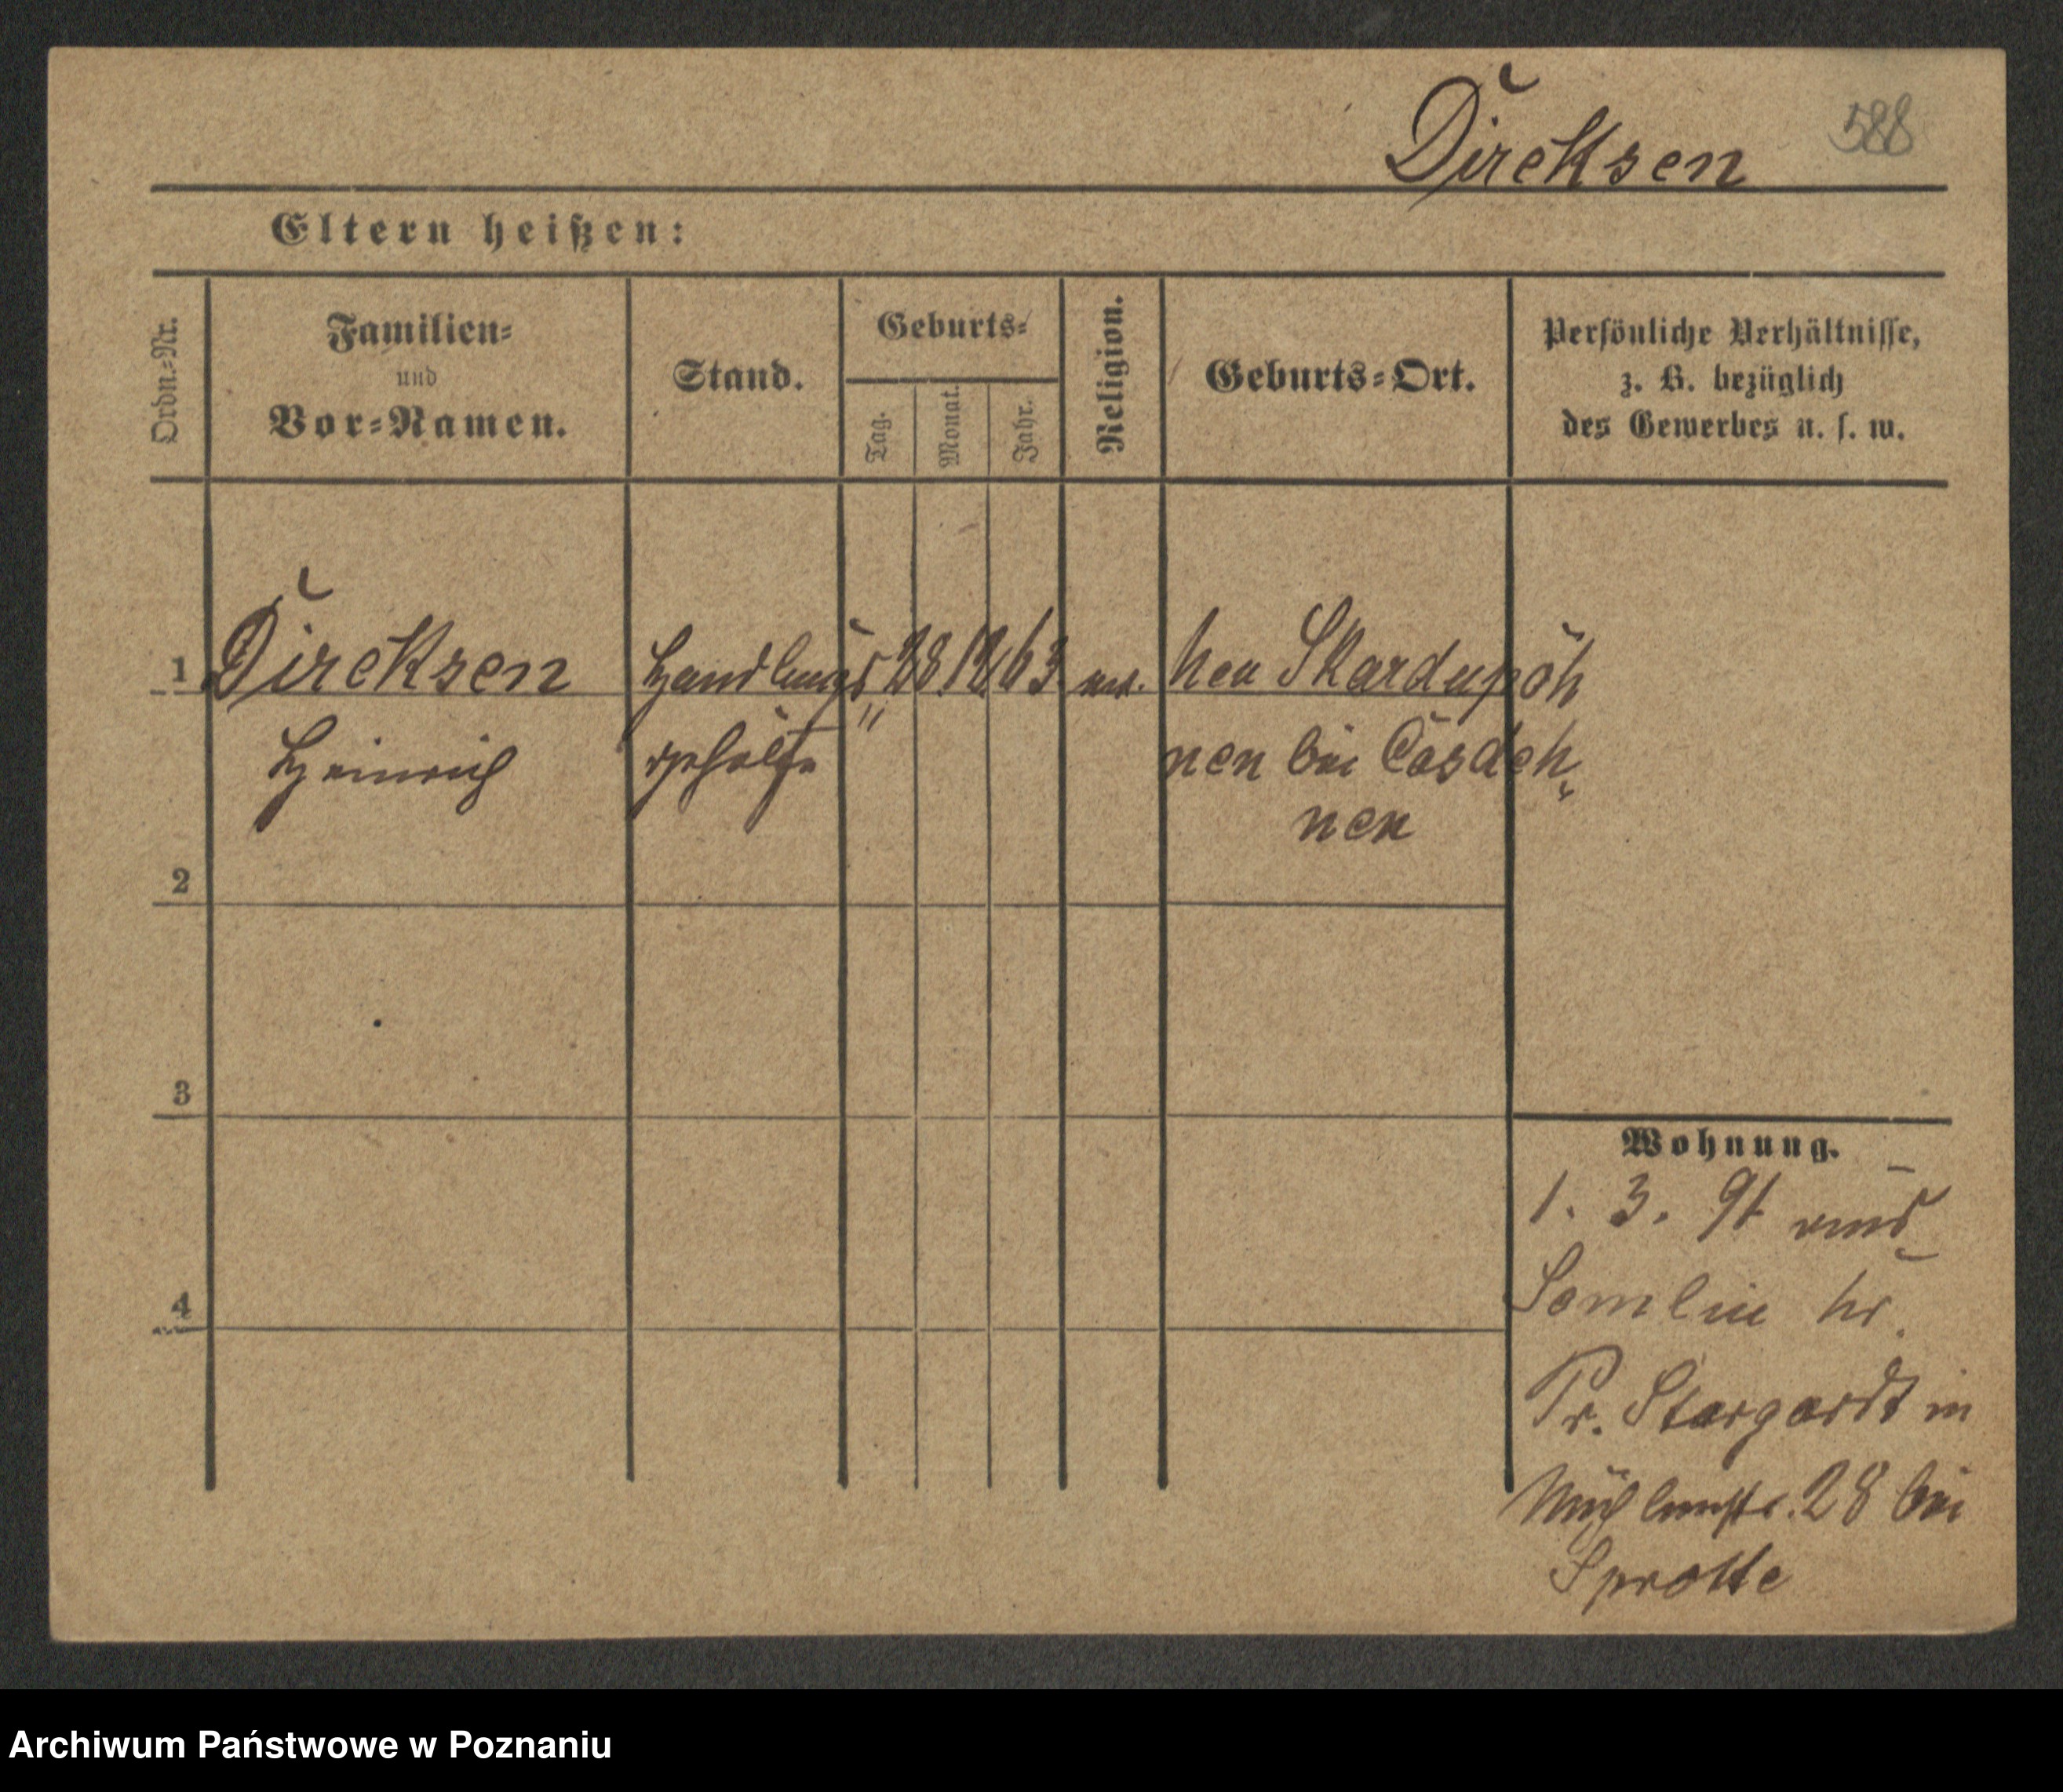 Direksen 588
Eltern heißen:
Ordn.=Nr.
Familien=
und
Vor=Namen.
Stand.
Geburts=
Tag.
Monat.
Jahr.
Religion.
Geburts=Ort.
Persönliche Verhältnisse,
z. B. bezüglich
des Gewerbes u. s. w.
1 Direksen Handlungs 28 12 63 Neu Skardupöh
Heinrich gehülfe nen bei Lasdeh
nen
2
3
4
Wohnung.
1. 3. 91 aus
Semlin Kr.
Pr. Stargardt in
Mühlenstr. 28 bei
Sprotte
Archiwum Państwowe w Poznaniu